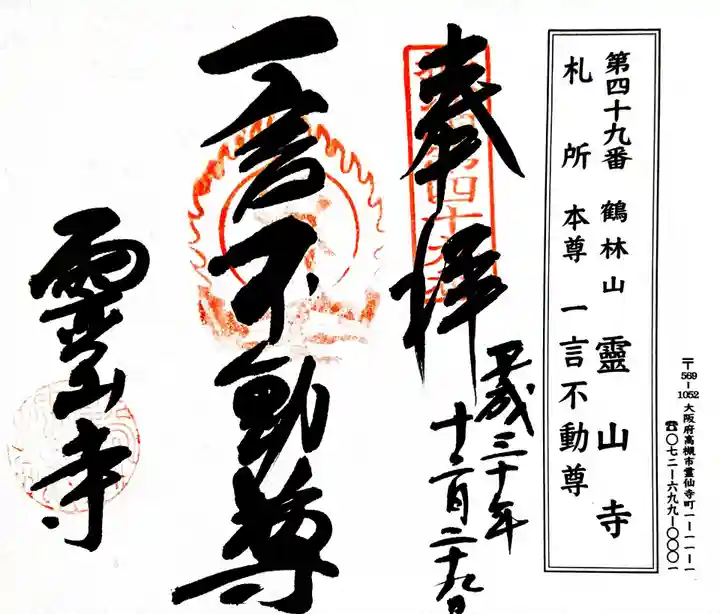 第四十九番 鶴林山 靈山寺
札所本尊 一言不動尊
〒569-1052 大阪府高槻市霊仙寺町一-一一-一
☎〇七二-六九九-〇〇〇一
奉拝
平成三十年
十二月二十九日
一言不動尊
靈山寺